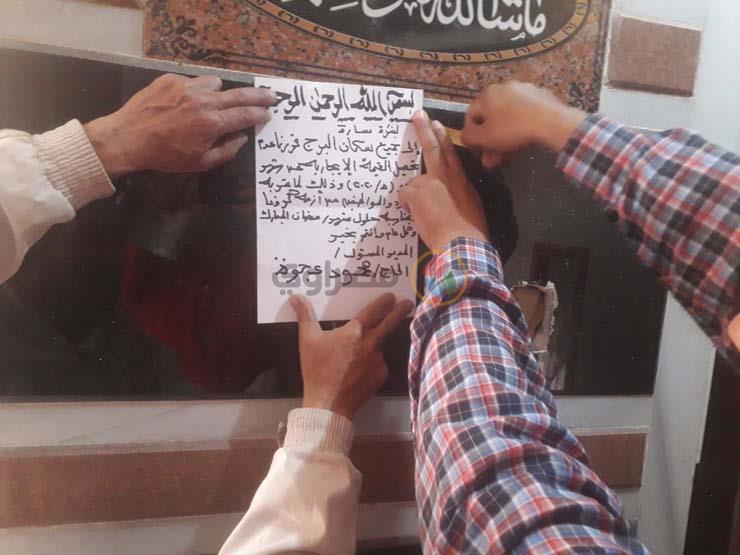 ماشاء الله
بسم الله الرحمن الرحيم
بشرة سارة
إلى جميع سكان البرج قررنا عدم
تحصيل القيمة الإيجارية عن شهر
(٥/٢٠٢٠) وذلك لما تمر به
والمواطنين من أزمة كورونا
حلول شهر / رمضان المبارك
وكل عام وانتم بخير
المدير المسئول /
الحاج / محمود عجوة
مصراوي